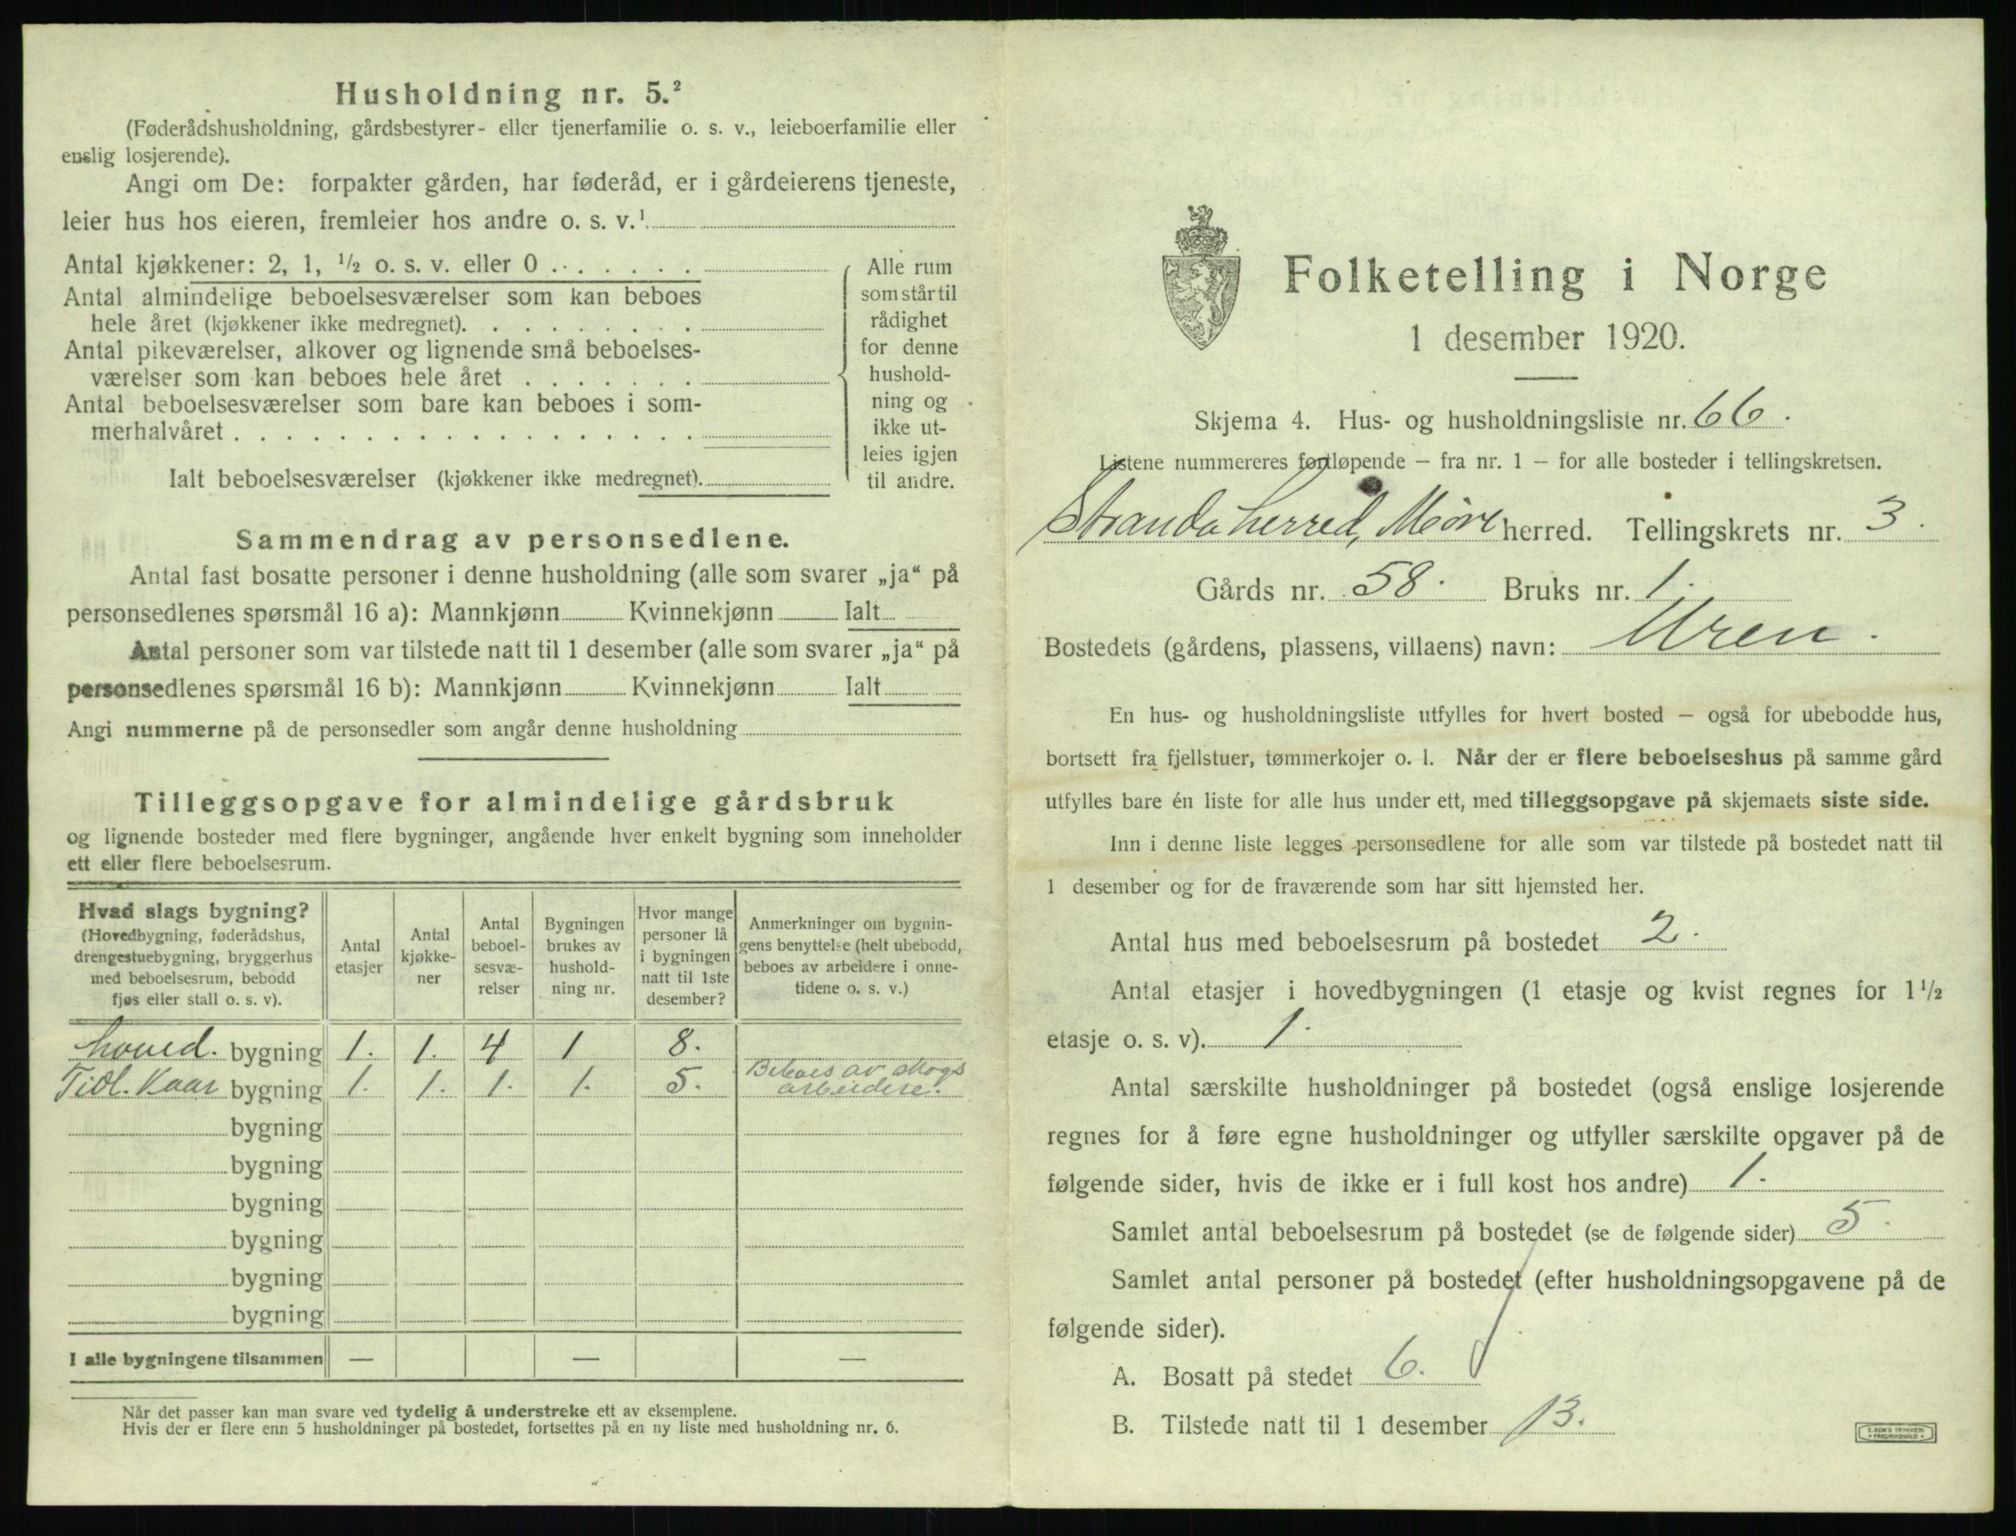 Husholdning nr. 5.²
(Føderådshusholdning, gårdsbestyrer- eller tjenerfamilie o. s. v., leieboerfamilie eller
enslig losjerende).
Angi om De: forpakter gården, har føderåd, er i gårdeierens tjeneste,
leier hus hos eieren, fremleier hos andre o. s. v.¹
Antal kjøkkener: 2, 1, ½ o. s. v. eller 0
Antal almindelige beboelsesværelser som kan beboes
hele året (kjøkkener ikke medregnet).
Antal pikeværelser, alkover og lignende små beboelses-
værelser som kan beboes hele året
Antal beboelsesværelser som bare kan beboes i som-
merhalvåret
Ialt beboelsesværelser (kjøkkener ikke medregnet).
Alle rum
som står til
rådighet
for denne
hushold-
ning og
ikke ut-
leies igjen
til andre.
Sammendrag av personsedlene.
Antal fast bosatte personer i denne husholdning (alle som svarer „ja“ på
personsedlenes spørsmål 16 a): Mannkjønn Kvinnekjønn Ialt
Antal personer som var tilstede natt til 1 desember (alle som svarer „ja“ på
personsedlenes spørsmål 16 b): Mannkjønn Kvinnekjønn Ialt
Angi nummerne på de personsedler som angår denne husholdning
Tilleggsopgave for almindelige gårdsbruk
og lignende bosteder med flere bygninger, angående hver enkelt bygning som inneholder
ett eller flere beboelsesrum.
Hvad slags bygning?
(Hovedbygning, føderådshus,
drengestuebygning, bryggerhus
med beboelsesrum, bebodd
fjøs eller stall o. s. v).
Antal
etasjer
Antal
kjøkke-
ner
Antal
beboel-
sesvæ-
relser
Bygningen
brukes av
hushold-
ning nr.
Hvor mange
personer lå
i bygningen
natt til 1ste
desember?
Anmerkninger om bygnin-
gens benyttelse (helt ubebodd,
beboes av arbeidere i onne-
tidene o. s. v.)
hoved. bygning 1. 1. 4 1 8.
Tidl. Kaar bygning 1. 1. 1. 1. 5. Beboes av skogs
arbeidere.
bygning
bygning
bygning
bygning
bygning
bygning
I alle bygningene tilsammen — — —
Når det passer kan man svare ved tydelig å understreke ett av eksemplene.
Hvis der er flere enn 5 husholdninger på bostedet, fortsettes på en ny liste med husholdning nr. 6.
Folketelling i Norge
1 desember 1920.
Skjema 4. Hus- og husholdningsliste nr. 66.
Listene nummereres fortløpende – fra nr. 1 – for alle bosteder i tellingskretsen.
Stranda herred, Møre herred. Tellingskrets nr. 3.
Gårds nr. 58. Bruks nr. 1.
Bostedets (gårdens, plassens, villaens) navn: Uren.
En hus- og husholdningsliste utfylles for hvert bosted – også for ubebodde hus,
bortsett fra fjellstuer, tømmerkojer o. l. Når der er flere beboelseshus på samme gård
utfylles bare én liste for alle hus under ett, med tilleggsopgave på skjemaets siste side.
Inn i denne liste legges personsedlene for alle som var tilstede på bostedet natt til
1 desember og for de fraværende som har sitt hjemsted her.
Antal hus med beboelsesrum på bostedet 2.
Antal etasjer i hovedbygningen (1 etasje og kvist regnes for 1½
etasje o. s. v). 1.
Antal særskilte husholdninger på bostedet (også enslige losjerende
regnes for å føre egne husholdninger og utfyller særskilte opgaver på de
følgende sider, hvis de ikke er i full kost hos andre) 1.
Samlet antal beboelsesrum på bostedet (se de følgende sider) 5.
Samlet antal personer på bostedet (efter husholdningsopgavene på de
følgende sider).
A. Bosatt på stedet 6.
B. Tilstede natt til 1 desember 13.